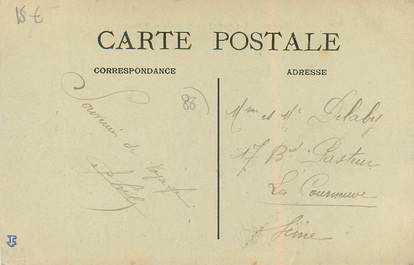 15 €
CARTE POSTALE
CORRESPONDANCE
ADRESSE
86
Souvenir de voyage
Mme et Mr Delaby
17 Bd Pasteur
La Courneuve
Seine